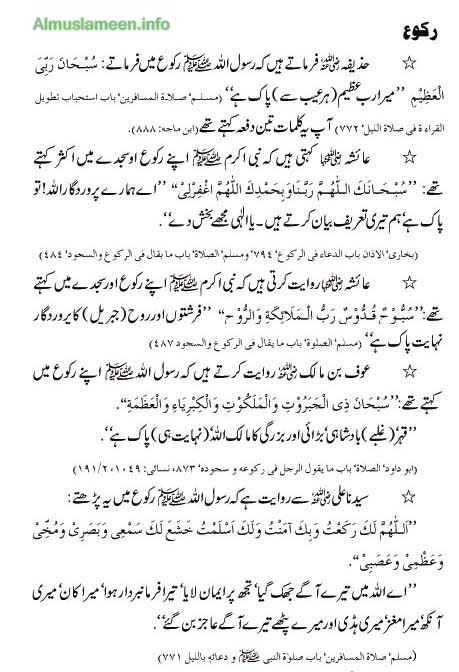 Almuslameen.info
رکوع
☆ حذیفہ ؓ فرماتے ہیں کہ رسول اللہ ﷺ رکوع میں فرماتے: سُبْحَانَ رَبِّیَ
الْعَظِیْمِ ’’میرا رب عظیم (ہر عیب سے) پاک ہے‘‘ (مسلم‘ صلاة المسافرین‘ باب استحباب تطویل
القراءة فی صلاة اللیل‘ ۷۷۲) آپ یہ کلمات تین دفعہ کہتے تھے (ابن ماجه: ۸۸۸).
☆ عائشہ ؓ کہتی ہیں کہ نبی اکرم ﷺ اپنے رکوع اور سجدے میں اکثر کہتے
تھے: ’’سُبْحَانَكَ اللّٰهُمَّ رَبَّنَا وَبِحَمْدِكَ اللّٰهُمَّ اغْفِرْلِیْ‘‘ ’’اے ہمارے پروردگار اللہ! تو
پاک ہے‘ ہم تیری تعریف بیان کرتے ہیں۔ یا الٰہی مجھے بخش دے‘‘.
(بخاری‘ الاذان باب الدعاء فی الرکوع‘ ۷۹۴ ومسلم‘ الصلاة‘ باب ما یقال فی الرکوع والسجود‘ ۴۸۴)
☆ عائشہ ؓ روایت کرتی ہیں کہ نبی اکرم ﷺ اپنے رکوع اور سجدے میں کہتے
تھے: ’’سُبُّوْحٌ قُدُّوْسٌ رَبُّ الْمَلَائِكَةِ وَالرُّوْحِ‘‘ ’’فرشتوں اور روح (جبریل) کا پروردگار
نہایت پاک ہے‘‘ (مسلم‘ الصلوة‘ باب ما یقال فی الرکوع والسجود ۴۸۷)
☆ عوف بن مالک ؓ روایت کرتے ہیں کہ رسول اللہ ﷺ اپنے رکوع میں
کہتے تھے: ’’سُبْحَانَ ذِی الْجَبَرُوْتِ وَالْمَلَكُوْتِ وَالْكِبْرِیَاءِ وَالْعَظَمَةِ‘‘.
’’قہر (غلبے) بادشاہی‘ بڑائی اور بزرگی کا مالک اللہ‘ (نہایت ہی) پاک ہے‘‘.
(ابو داود‘ الصلاة‘ باب ما یقول الرجل فی رکوعه و سجوده‘ ۸۷۳‘ نسائی: ۱۰۴۹‘ ۱۹۱/۲)
☆ سیدنا علی ؓ سے روایت ہے کہ رسول اللہ ﷺ رکوع میں یہ پڑھتے:
’’اَللّٰهُمَّ لَكَ رَكَعْتُ وَبِكَ آمَنْتُ وَلَكَ اَسْلَمْتُ خَشَعَ لَكَ سَمْعِی وَبَصَرِیْ وَمُخِّیْ
وَعَظْمِیْ وَعَصَبِیْ‘‘.
’’اے اللہ میں تیرے آگے جھک گیا‘ تجھ پر ایمان لایا‘ تیرا فرمانبردار ہوا‘ میرا کان‘ میری
آنکھ‘ میرا مغز‘ میری ہڈی اور میرے پٹھے تیرے آگے عاجز بن گئے‘‘.
(مسلم‘ صلاة المسافرین‘ باب صلوة النبی ﷺ و دعائه باللیل ۷۷۱)